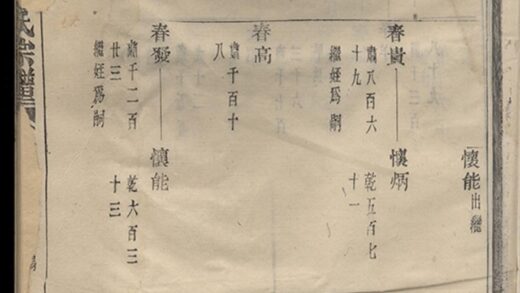 懷能出繼
春貴
肅八百六
十九
繼姪爲嗣
懷炳
乾五百七
十一
春高
肅千百十
八
春發
肅千二百
廿三
繼姪爲嗣
懷能
乾六百三
十三
氏宗譜